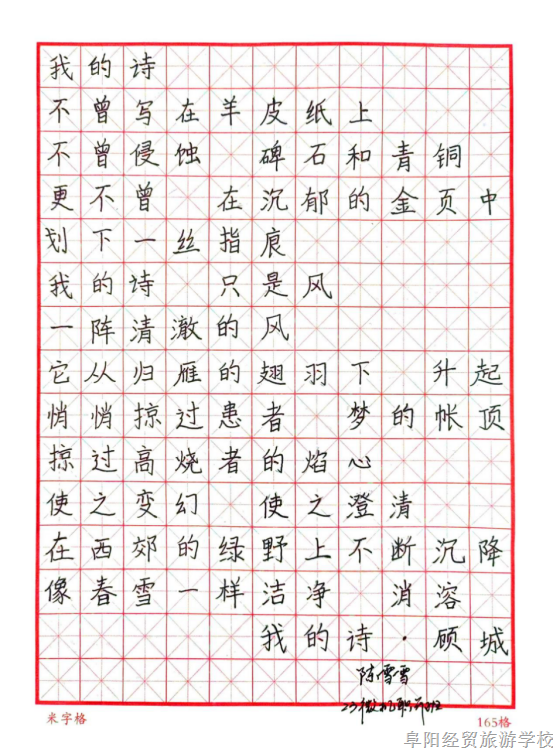 我的诗
不曾写在羊皮纸上
不曾侵蚀 碑石和青铜
更不曾 在沉郁的金页中
划下一丝指痕
我的诗 只是风
一阵清澈的风
它从归雁的翅羽下 升起
悄悄掠过患者 梦的帐顶
掠过高烧者的焰心
使之变幻 使之澄清
在西郊的绿野上不断沉降
像春雪一样洁净 消溶
我的诗·顾城
陈雪雪
米字格
165格
阜阳经贸旅游学校